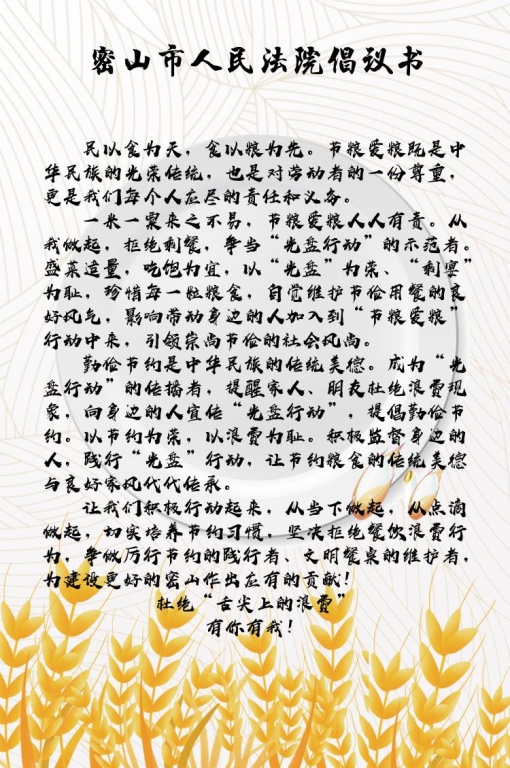 密山市人民法院倡议书
民以食为天，食以粮为先。节粮爱粮既是中
华民族的光荣传统，也是对劳动者的一份尊重，
更是我们每个人应尽的责任和义务。
一米一粟来之不易，节粮爱粮人人有责。从
我做起，拒绝剩餐，争当“光盘行动”的示范者。
盛菜适量，吃饱为宜，以“光盘”为荣、“剩宴”
为耻，珍惜每一粒粮食，自觉维护节俭用餐的良
好风气，影响带动身边的人加入到“节粮爱粮”
行动中来，引领崇尚节俭的社会风尚。
勤俭节约是中华民族的传统美德。成为“光
盘行动”的传播者，提醒家人、朋友杜绝浪费现
象，向身边的人宣传“光盘行动”，提倡勤俭节
约。以节约为荣，以浪费为耻。积极监督身边的
人，践行“光盘”行动，让节约粮食的传统美德
与良好家风代代传承。
让我们积极行动起来，从当下做起，从点滴
做起，切实培养节约习惯，坚决拒绝餐饮浪费行
为，争做厉行节约的践行者、文明餐桌的维护者，
为建设更好的密山作出应有的贡献！
杜绝“舌尖上的浪费”
有你有我！